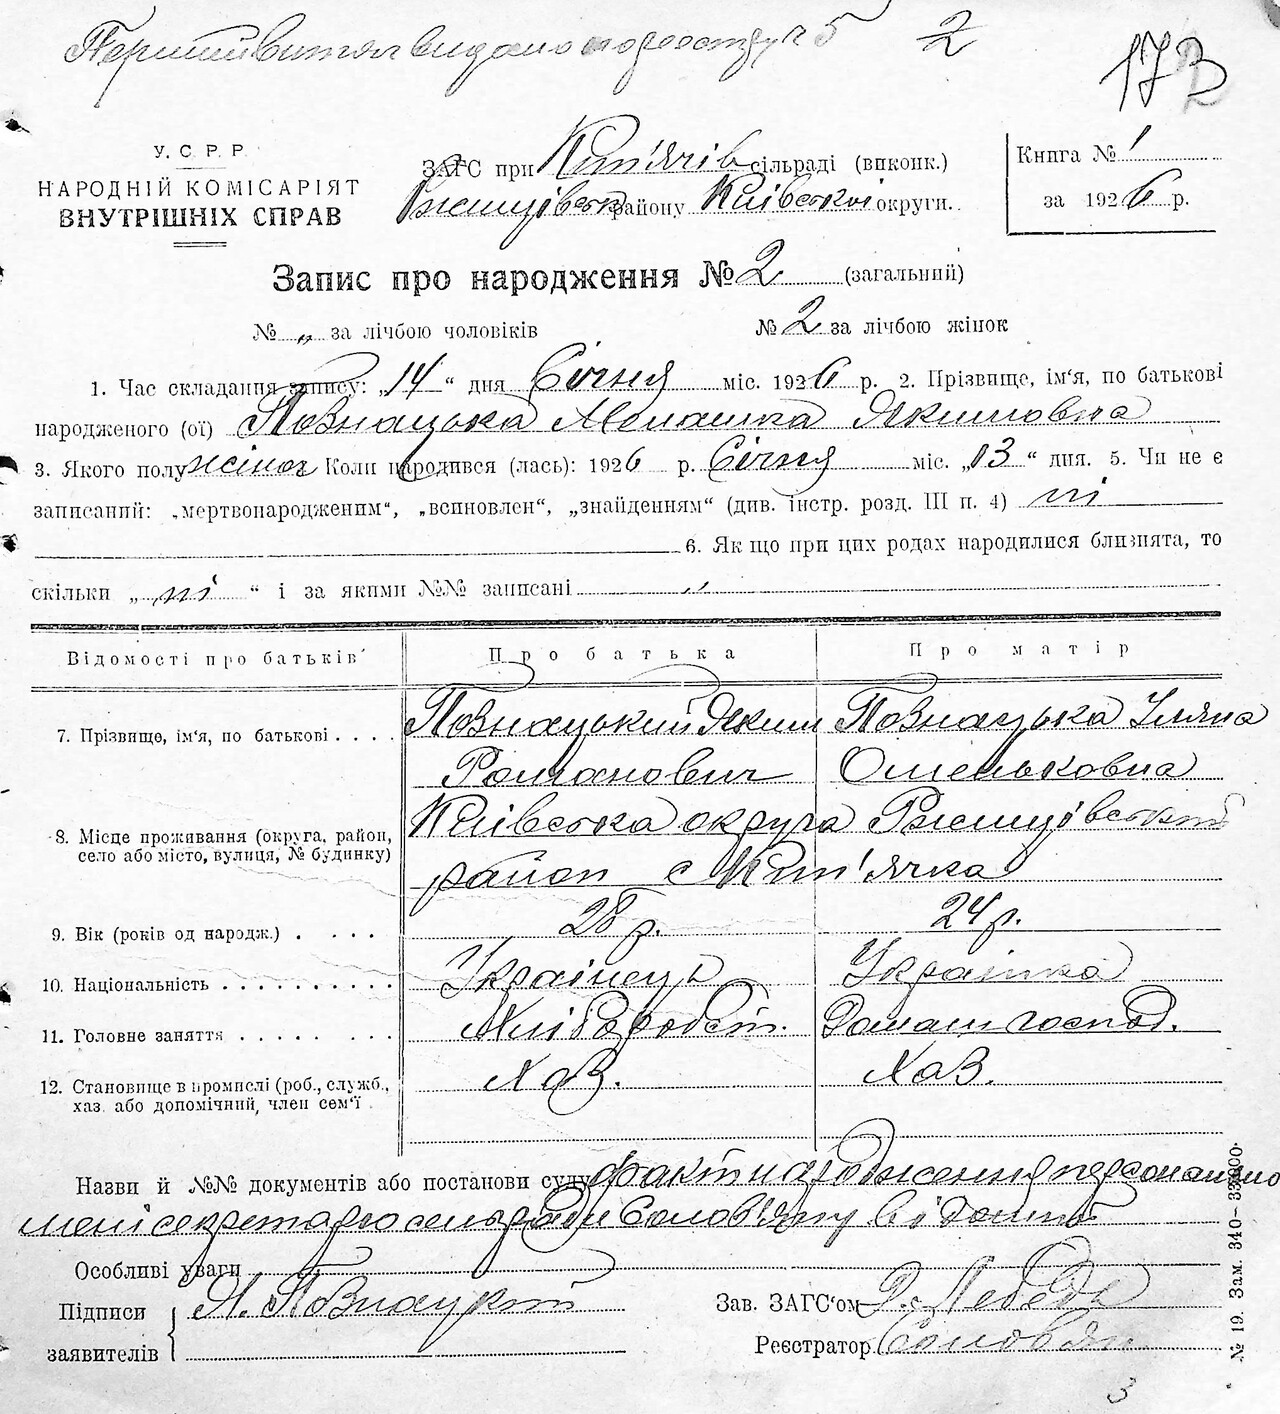 Перший витяг видано по реєстру ч 5 2
173
У. С. Р. Р.
НАРОДНІЙ КОМІСАРІЯТ
ВНУТРІШНІХ СПРАВ
ЗАГС при сільраді (виконк.)
району Київської округи.
Книга № 1
за 1926 р.
Запис про народження № 2 (загальний)
№ „ за лічбою чоловіків № 2 за лічбою жінок
1. Час складання запису: „14“ дня Січня міс. 1926 р. 2. Прізвище, ім'я, по батькові
народженого (ої) Познацька Мелашка Якимовна
3. Якого полу жіноч Коли народився (лась): 1926 р. Січня міс. „13“ дня. 5. Чи не є
записаний: „мертвонародженим“, „всиновлен“, „знайденням“ (див. інстр. розд. III п. 4) ні
6. Як що при цих родах народилися близнята, то
скільки „ ні “ і за якими №№ записані „
Відомості про батьків Про батька Про матір
7. Прізвище, ім'я, по батькові Познацький Яким Познацька Уляна
Романович Омельковна
8. Місце проживання (округа, район, село або місто, вулиця, № будинку) Київська округа Ржищівський
район с
9. Вік (років од народж.) 28 р. 24 р.
10. Національність Українець Українка
11. Головне заняття Хліборобст. Домашн господ.
12. Становище в промислі (роб., служб., хаз. або допомічний, член сем'ї Хаз. Хаз.
Назви й №№ документів або постанови суду факт народження персонально
мені секретарю сельради Солов'яну відомий
Особливі уваги
Підписи заявителів Я. Познацкий
Зав. ЗАГС'ом Лебедь
Реєстратор Солов'ян
№ 19. Зам. 340—
3